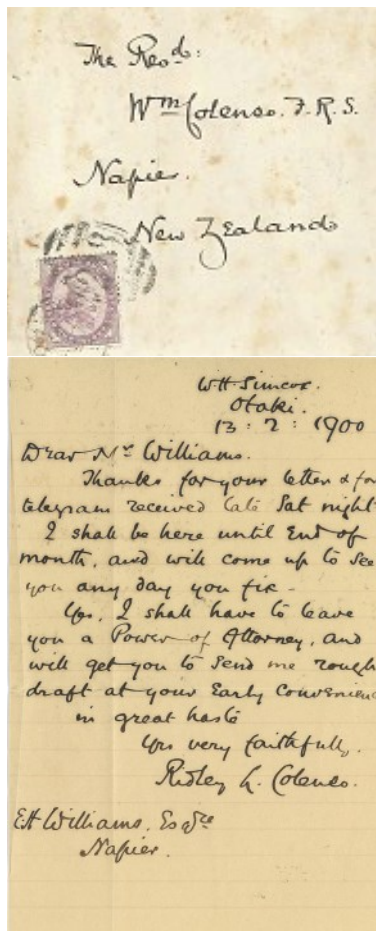 The Revd:
Wm Colenso. F.R.S.
Napier.
New Zealand
W H Simcox.
Otaki.
13 : 2 : 1900
Dear Mr Williams.
Thanks for your letter & for
telegram received late Sat night
I shall be here until End of
month, and will come up to See
you any day you fix -
Yes, I shall have to leave
you a Power of Attorney, and
will get you to Send me rough
draft at your Early Convenienc
in great haste
Yrs very faithfully,
Ridley L. Colenso.
EH Williams, Esqre
Napier.